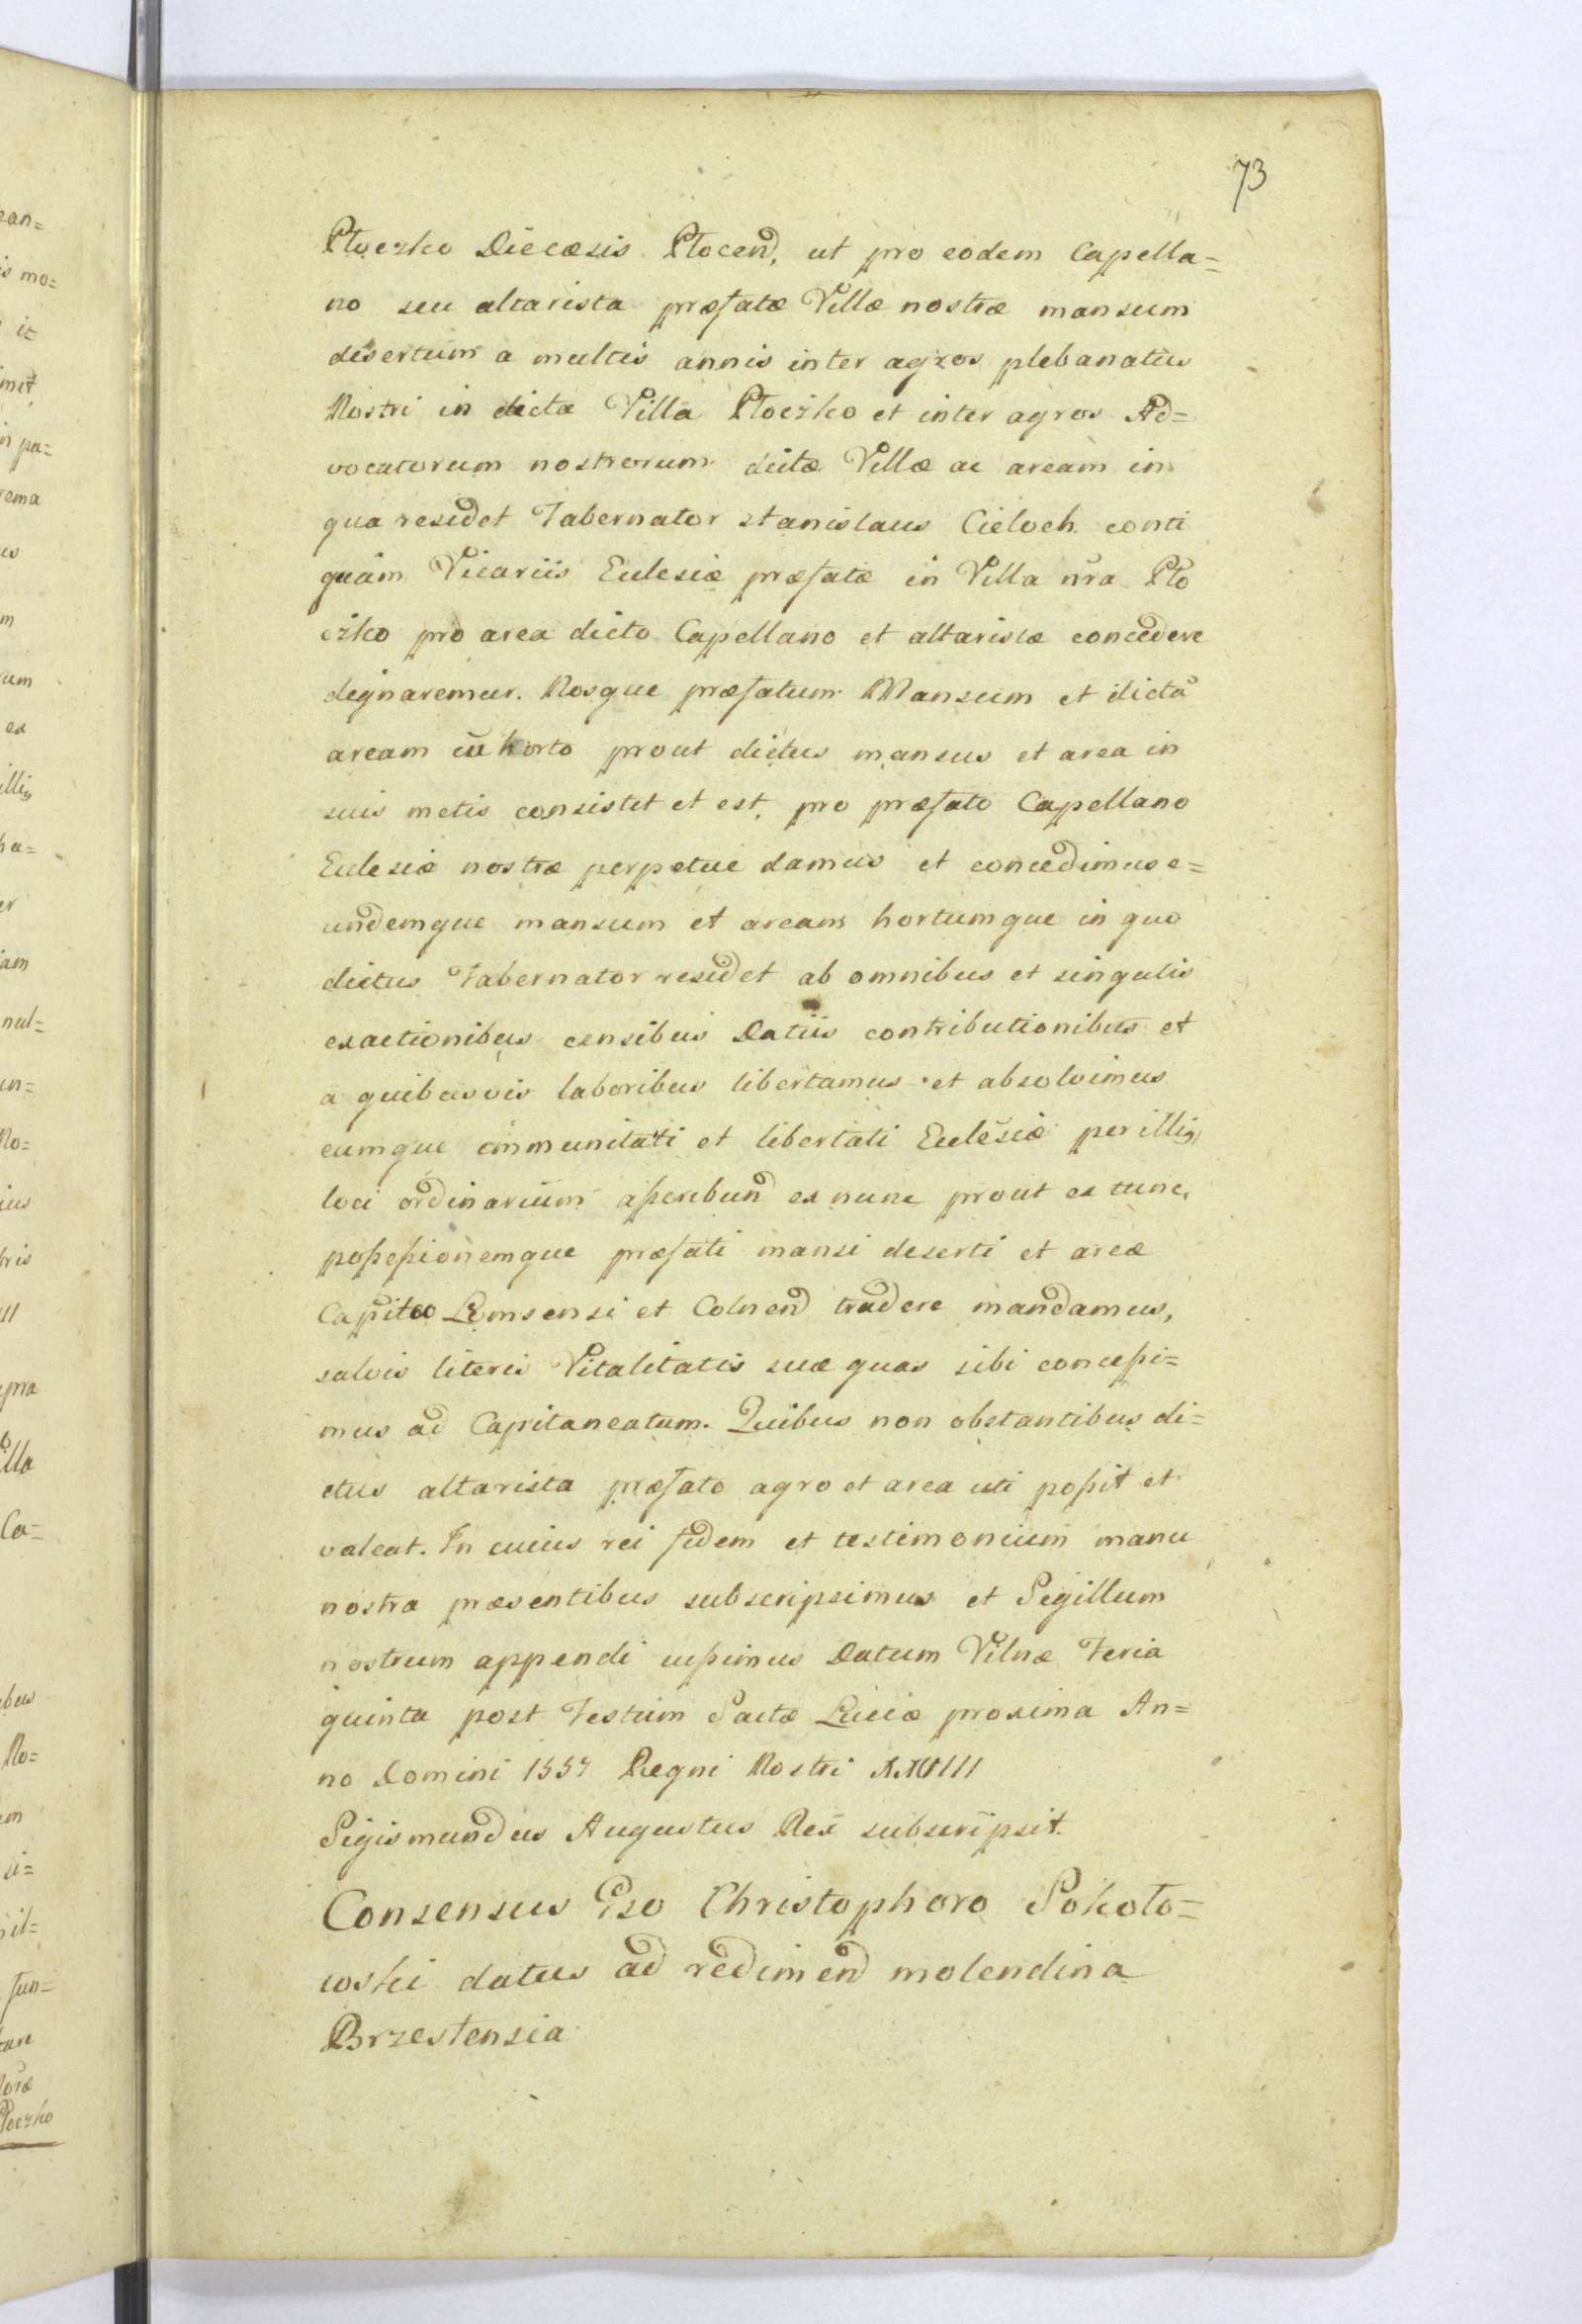 73
Płoczko Diecæsis Płocend, ut pro eodem Capella=
no seu altarista præfatæ Villæ nostræ mansum
desertum a multis annis inter agros plebanatus
Nostri in dicta Villa Płoczko et inter agros Ad=
vocatorum nostrorum dictæ Villæ ac aream in
qua residet Tabernator Stanislaus Cieloch conti
guam Vicariis Eclesiæ præfatæ in Villa nra Pło
czko pro area dicto Capellano et altaristæ concedere
degnaremur. Nosque præfatum Mansum et dictā
aream cū horto prout dictus mansus et area in
suis metis consistet et est, pro præfato Capellano
Eclesiæ nostræ perpetue damus et concedimus e=
undemque mansum et aream hortumque in quo
dictus Tabernator residet ab omnibus et singulis
exactionibus censibus Datiis contributionibus et
a quibusvis laboribus libertamus et absolvimus
eumque immunitati et libertati Eclesiæ per illig
loci ordinarium aßeribund ex nunc prout ex tunc,
poßeßionemque præfati mansi deserti et areæ
Lomsensi et Colnend tradere mandamus,
salvis literis Vitalitatis suæ quas sibi conceßi=
mus ad Capitaneatum. Quibus non obstantibus di=
ctus altarista præfato agro et area uti poßit et
valeat. In cuius rei fidem et testimonium manu
nostra præsentibus subscripsimus et Sigillum
nostrum appendi iußimus Datum Vilnæ Feria
quinta post Festum Sactæ Luciæ proxima An=
no Domini 1557 Regni Nostri XXVIII
Sigismundus Augustus Rex subscripsit.
Consensus Gso Christophoro Sokoło=
wski datus ad redimend molendina
Brzestensia
ean=
is mo=
it
mit
in pa=
rema
us
m
rum
ex
illig
ha=
er
iam
nul=
un=
No=
ius
tris
III
pra
illa
Ca=
ibus
No=
um
si=
il=
fun=
tare
Płoczko